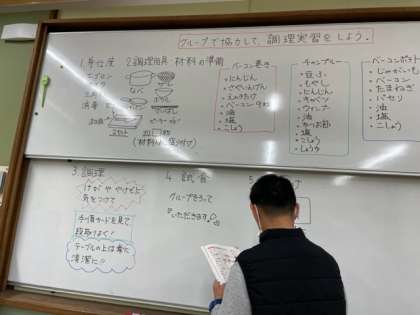 グループで協力して、調理実習をしよう。
1.身仕度
エプロン
消毒
2.調理用具・材料の準備
なべ
ざる
ピーラー
(材料は一箇所)
ベーコン巻き
・にんじん
・さやいんげん
・えのきだけ
・ベーコン9枚
・油
・塩
・こしょう
チャンプルー
・豆ふ
・もやし
・にんじん
・キャベツ
・ウィンナー
・油
・かつお節
・塩
・こしょう
・しょうゆ
ベーコンポテト
・じゃがいも
・ベーコン
・たまねぎ
・パセリ
・油
・塩
・こしょう
3.調理
けがややけどに
気をつけて
手順カードを見て
段取りよく!
テーブルの上は常に
清潔に!!
4.試食
グループそろって
『いただきます』